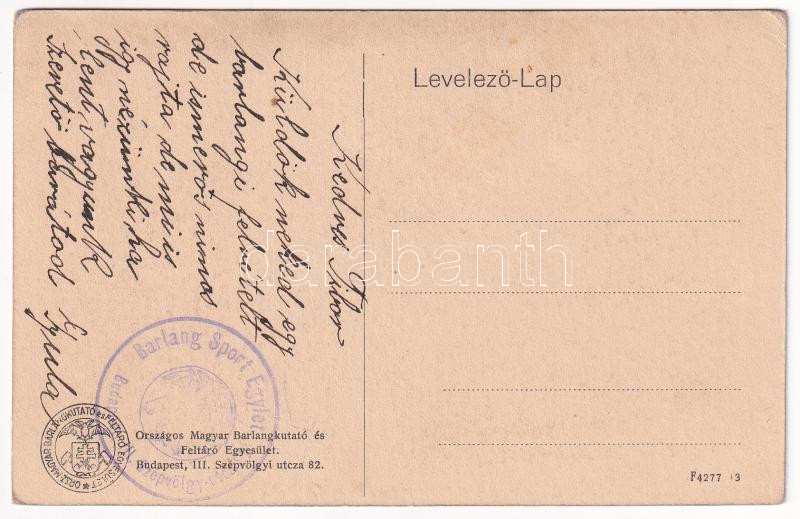 Levelező-Lap
Kedves Tibor
Küldök neked egy
barlangi felvételt
de ismerős nincs
rajta de mi is
így nézünk ha
lent vagyunk
Szerető barátod
Gyula
darabanth
Barlang Sport Egylet
Budapest III. Szépvölgyi-út
ORSZ. MAGYAR BARLANGKUTATÓ és FELTÁRÓ EGYESÜLET
Országos Magyar Barlangkutató és
Feltáró Egyesület.
Budapest, III. Szépvölgyi utcza 82.
F4277